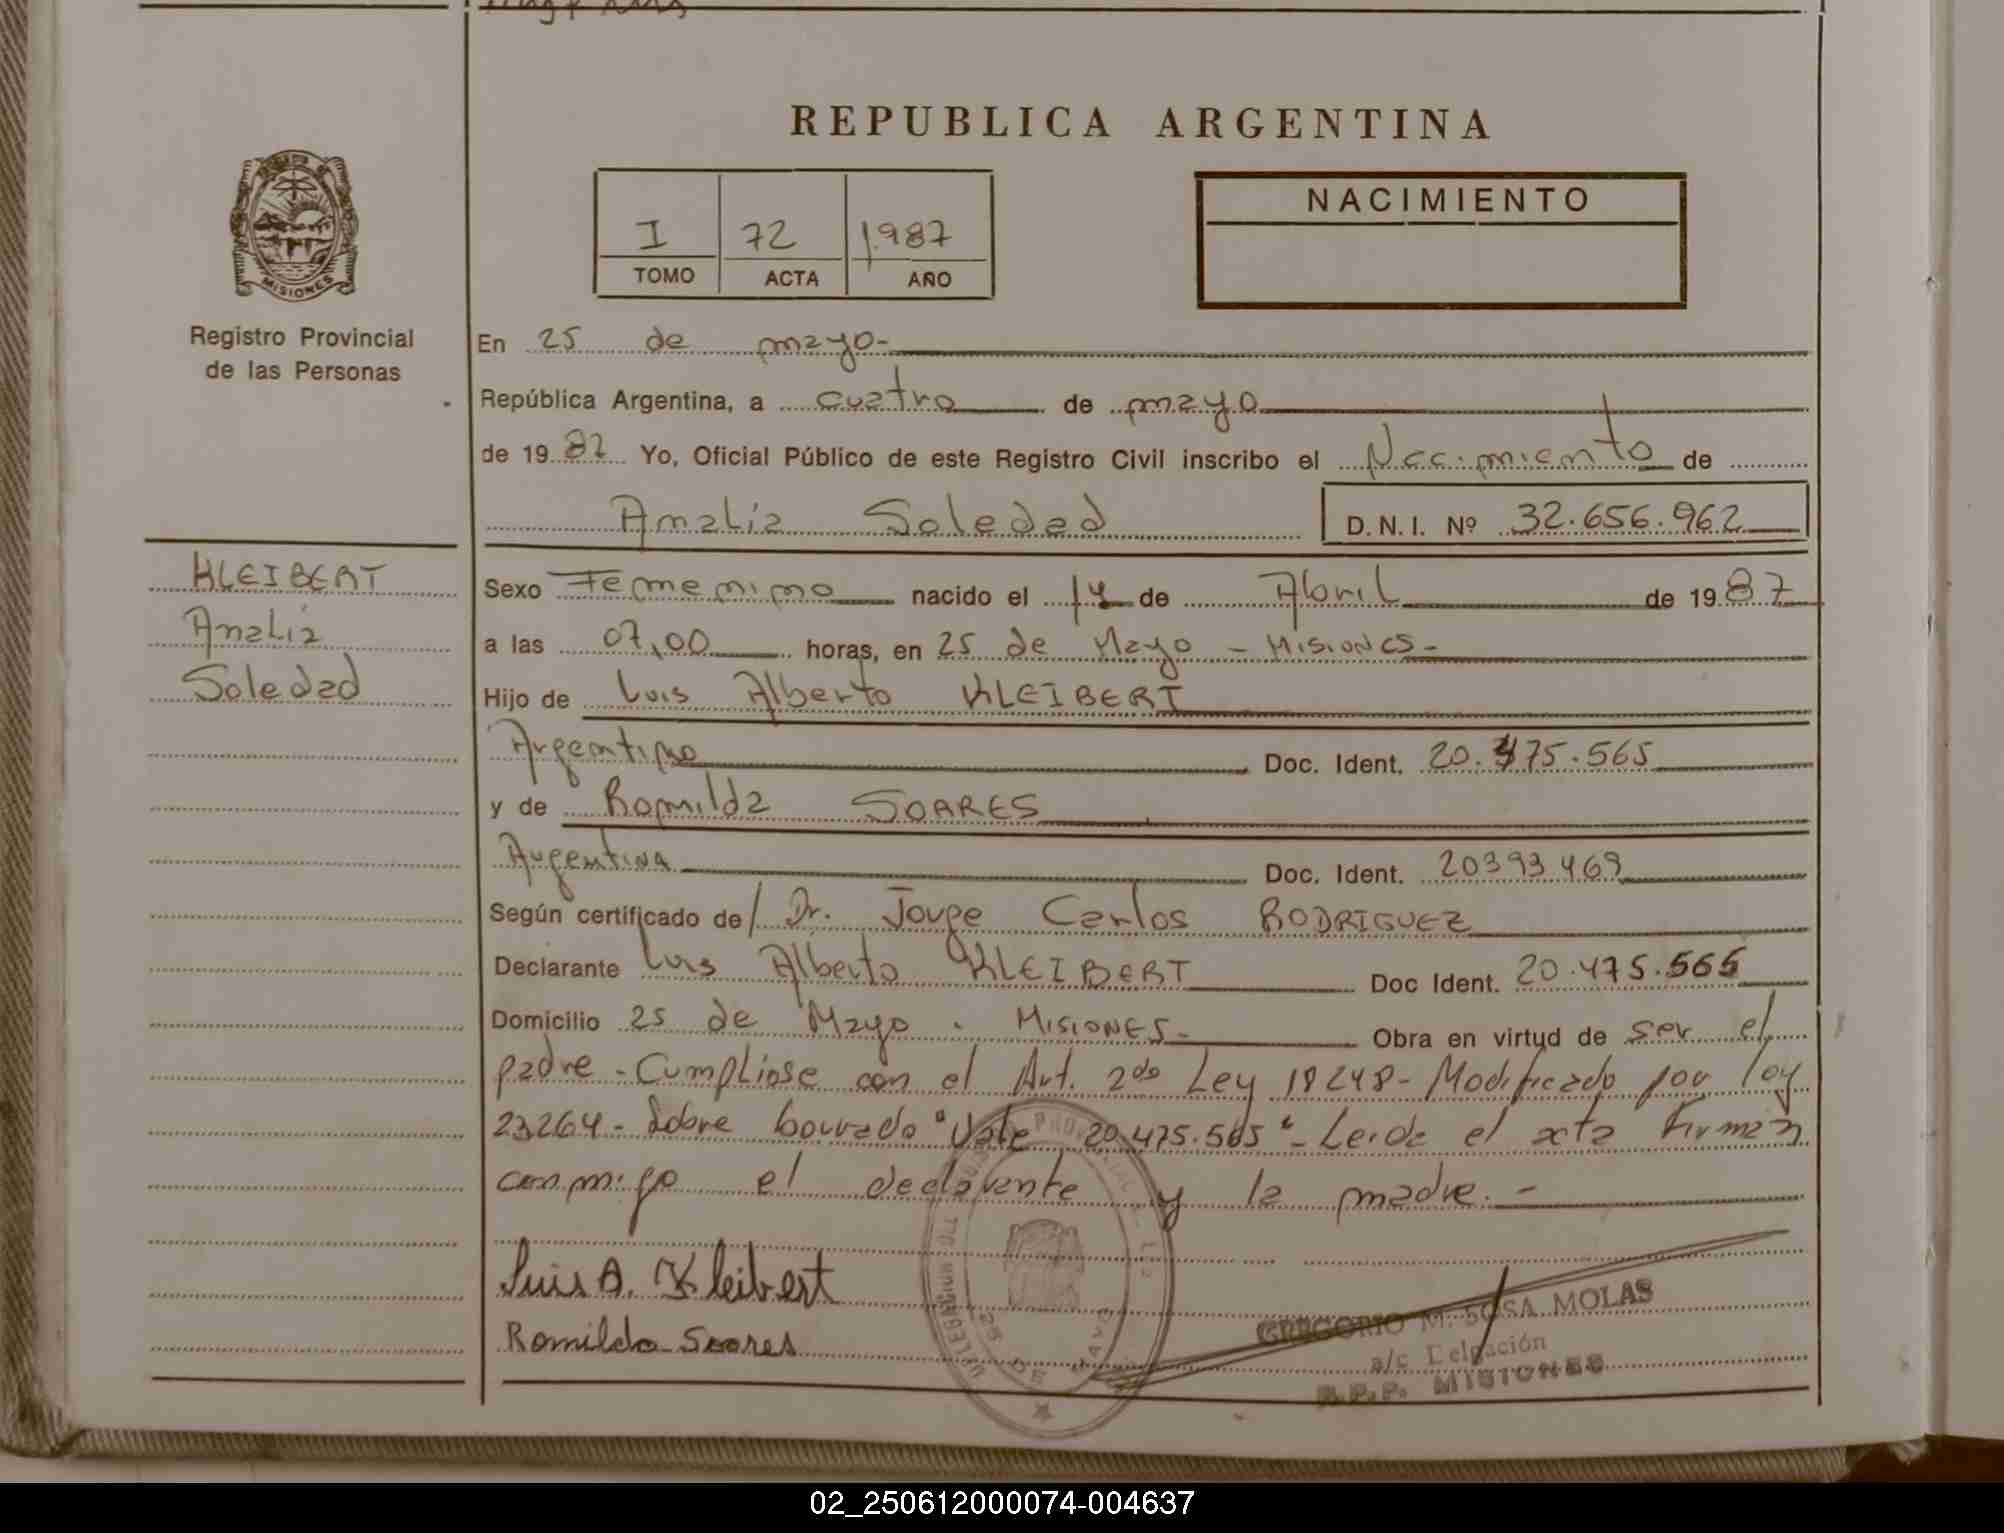 REPUBLICA ARGENTINA
MISIONES
Registro Provincial
de las Personas
I 72 1987
TOMO ACTA AÑO
NACIMIENTO
En 25 de mayo-
República Argentina, a cuatro de mayo
de 1987 Yo, Oficial Público de este Registro Civil inscribo el Nacimiento de
Analia Soledad D.N.I. Nº 32.656.962
KLEIBERT
Analia
Soledad
Sexo Femenino nacido el 14 de Abril de 1987
a las 07,00 horas, en 25 de Mayo - MISIONES-
Hijo de Luis Alberto KLEIBERT
Argentino Doc. Ident. 20.475.565
y de Romilda SOARES
Argentina Doc. Ident. 20393469
Según certificado de/ Dr. Jorge Carlos RODRIGUEZ
Declarante Luis Alberto KLEIBERT Doc Ident. 20.475.565
Domicilio 25 de Mayo - MISIONES- Obra en virtud de ser el
padre - Cumpliose con el Art. 2do Ley 18248- Modificado por ley
23264- Sobre borrado "Vale 20.475.565"- Leida el acta firman
conmigo el declarante y la madre.-
Luis A. Kleibert
Romilda Soares
25 DE MAYO
GREGORIO M. SOSA MOLAS
a/c Delgación
R.P.P. MISIONES
02_250612000074-004637